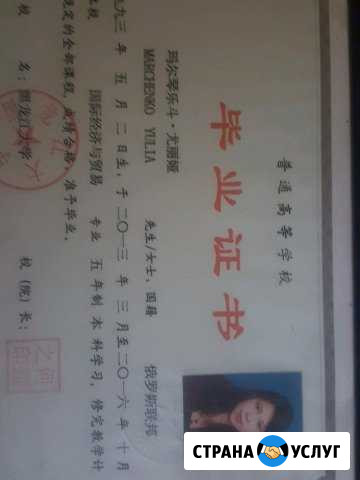 普通高等学校
毕业证书
玛尔琴乐斗·尤丽娅
MARCHENKO YULIA 先生/女士，国籍 俄罗斯联邦
九三 年 五 月 二 日生，于 二〇一三 年 三 月至二〇一六 年 十 月
本校 国际经济与贸易 专业 五 年制 本 科学习，修完教学计
规定的全部课程，成绩合格，准予毕业。
校 名：黑龙江大学 校（院）长：
СТРАНА УСЛУГ